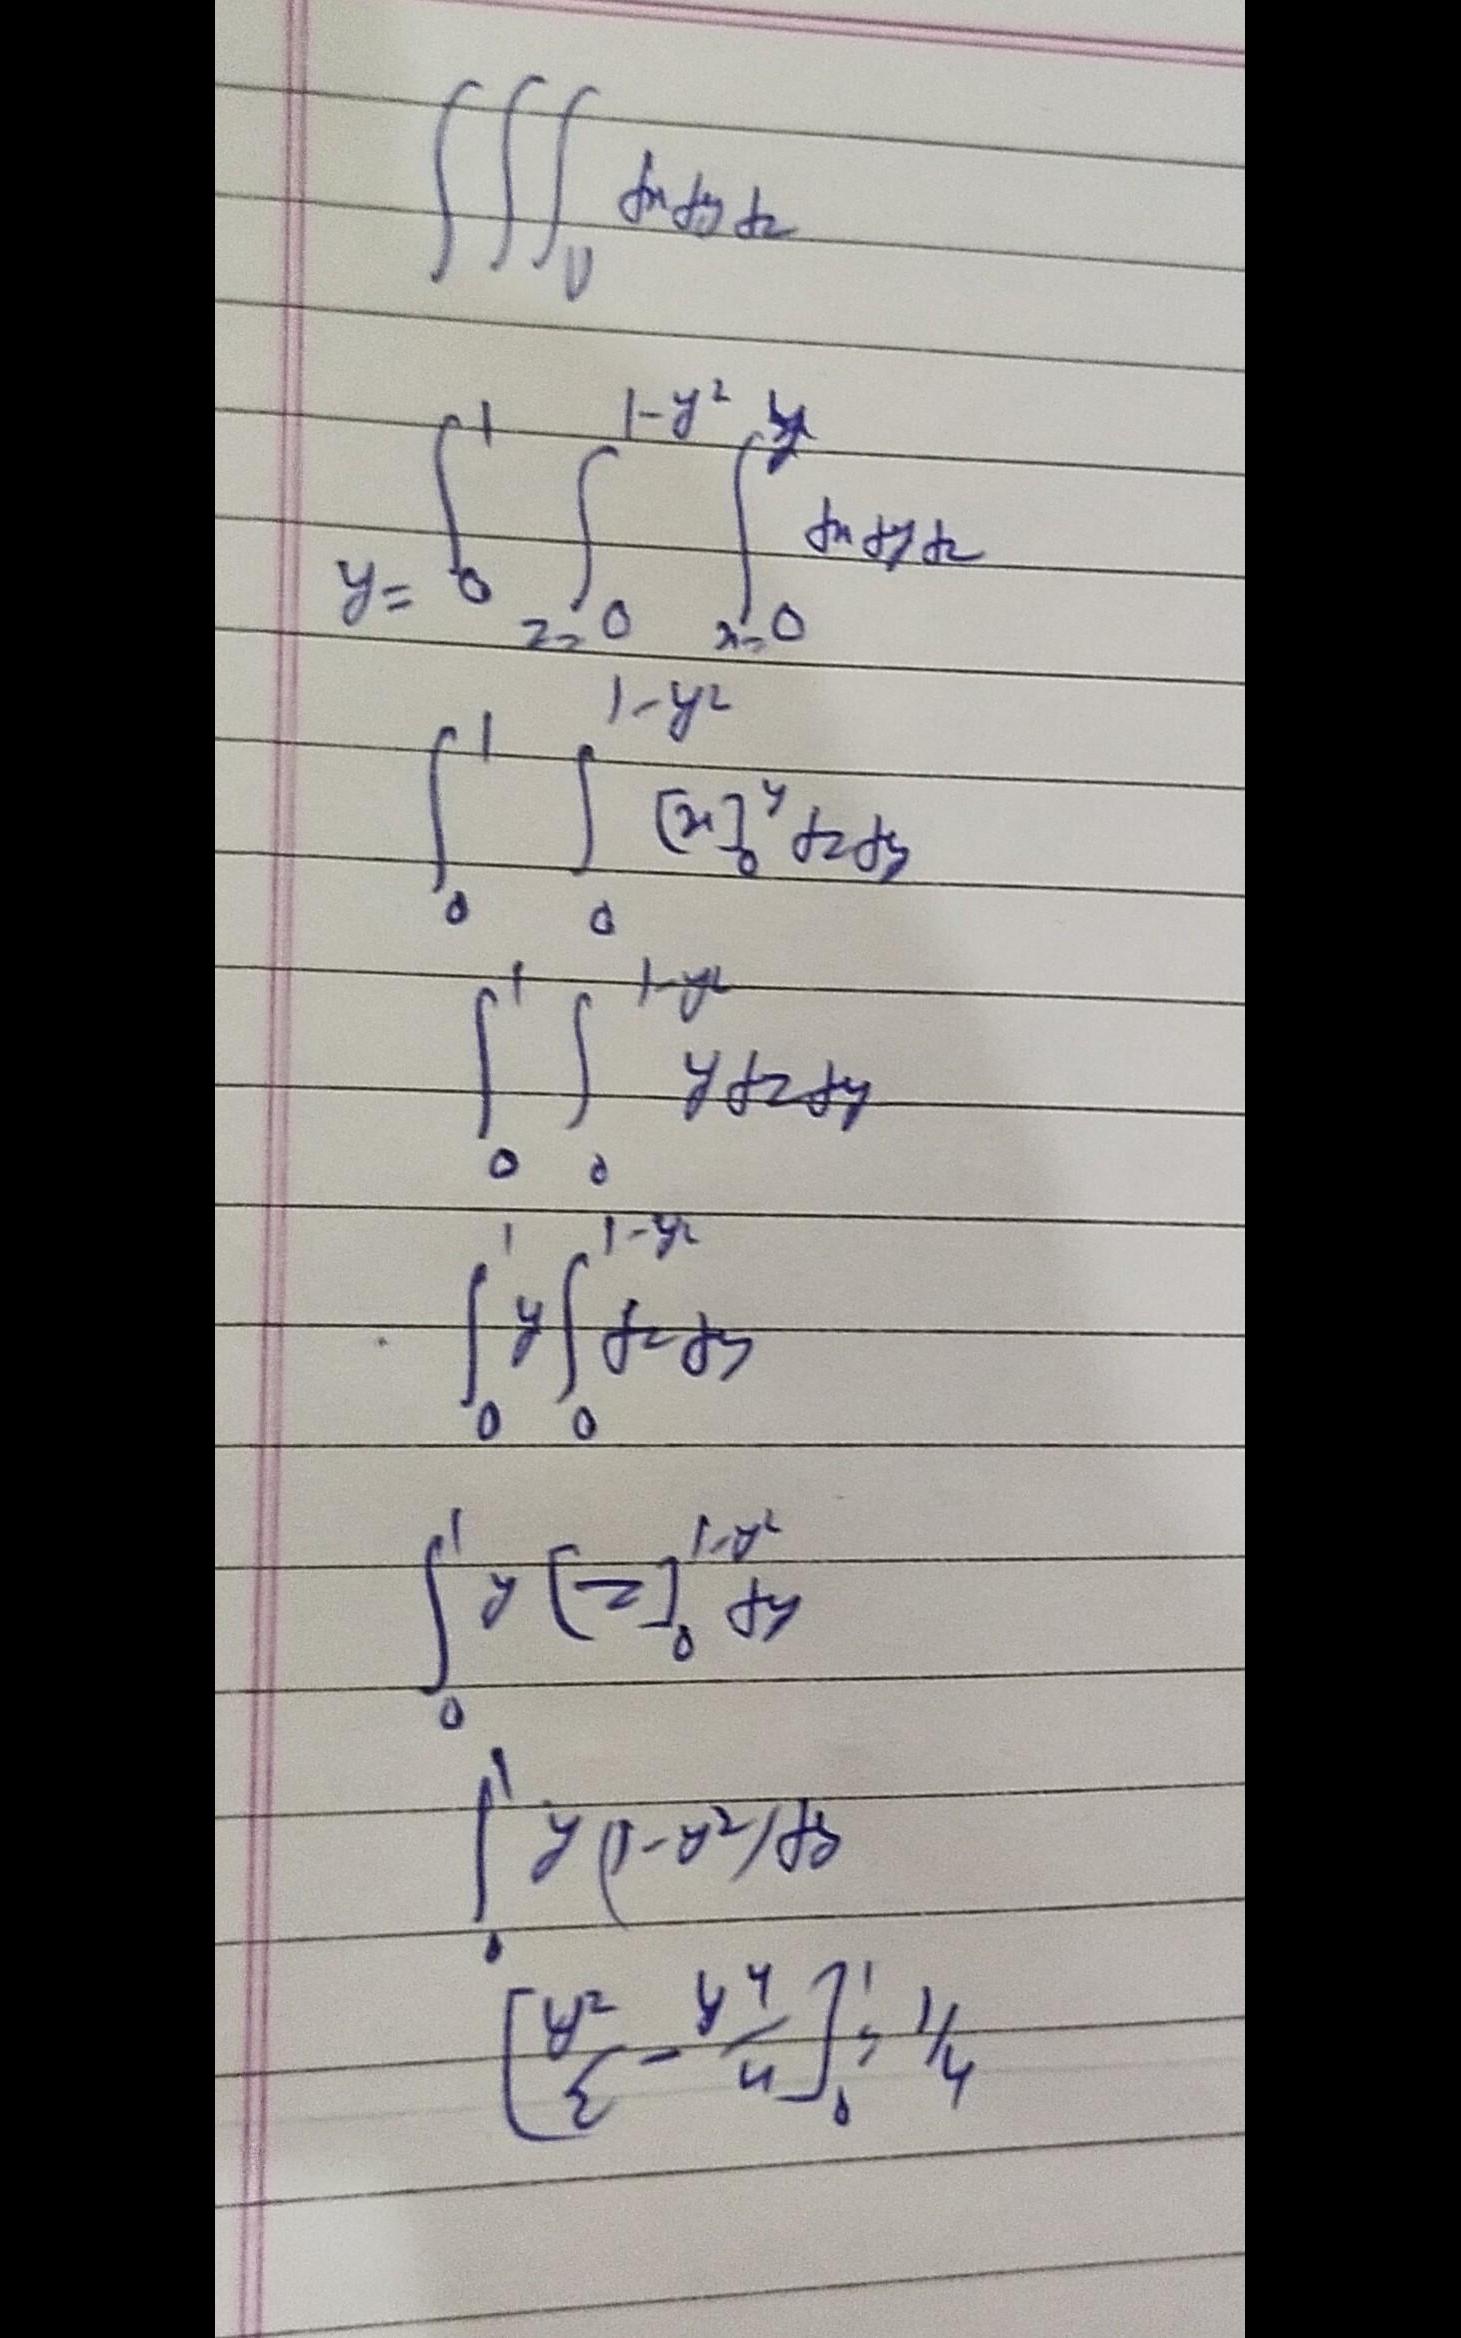 ∫∫∫_V dx dy dz
y= ∫_0^1 z= ∫_0^{1-y²} x= ∫_0^y dx dy dz
∫_0^1 ∫_0^{1-y²} [x]_0^y dz dy
∫_0^1 ∫_0^{1-y²} y dz dy
∫_0^1 y ∫_0^{1-y²} dz dy
∫_0^1 y [z]_0^{1-y²} dy
∫_0^1 y (1-y²) dy
[y²/2 - y⁴/4]_0^1 = 1/4